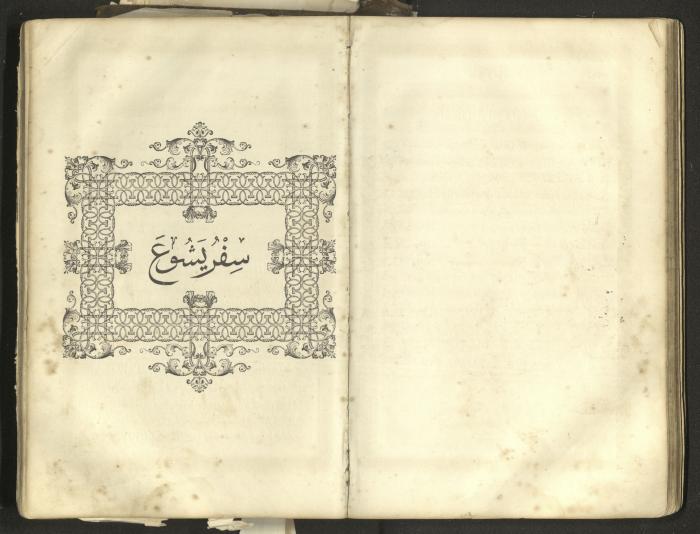 سِفْرُ يَشُوعَ